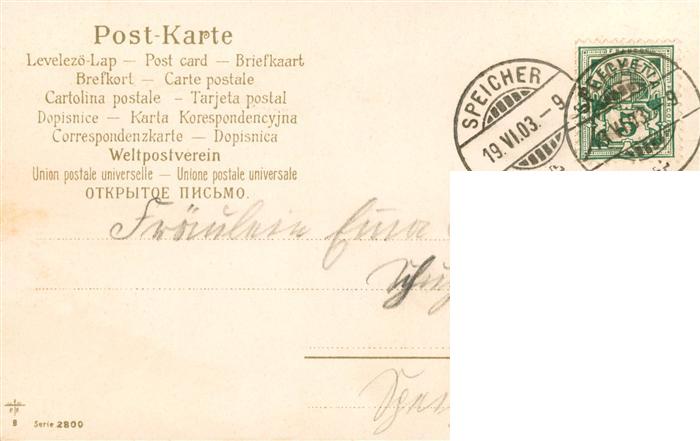 Post-Karte
Levelező-Lap — Post card — Briefkaart
Brefkort — Carte postale
Cartolina postale — Tarjeta postal
Dopisnice — Karta Korespondencyjna
Correspondenzkarte — Dopisnica
Weltpostverein
Union postale universelle — Unione postale universale
ОТКРЫТОЕ ПИСЬМО.
SPEICHER
19. VI. 03. – 9
5
Fräulein
8 Serie 2800